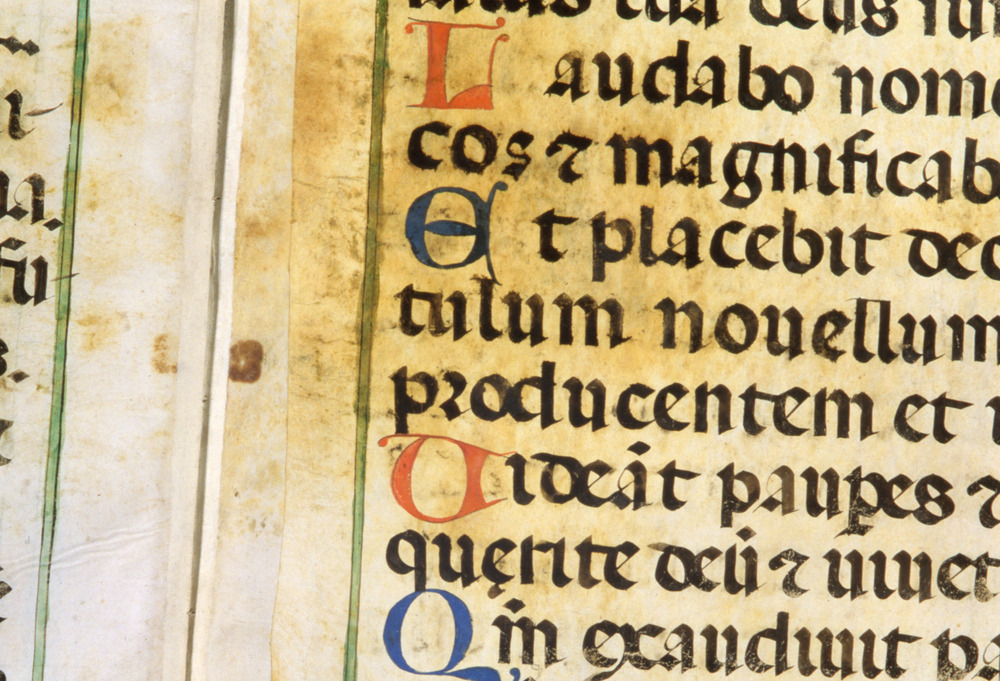 tua deus
Laudabo nom
cos ⁊ magnificab
Et placebit deo
tulum nouellum
producentem et
Uideāt pauꝑes ⁊
quęrite deū ⁊ uiuet
Qm̄ exaudiuit pa